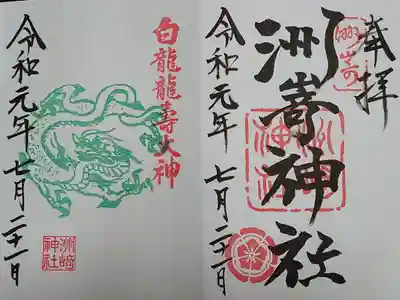 奉拝
洲嵜神社
洲崎神社
令和元年 七月二十一日
白龍龍壽大神
令和元年 七月二十一日
洲崎神社